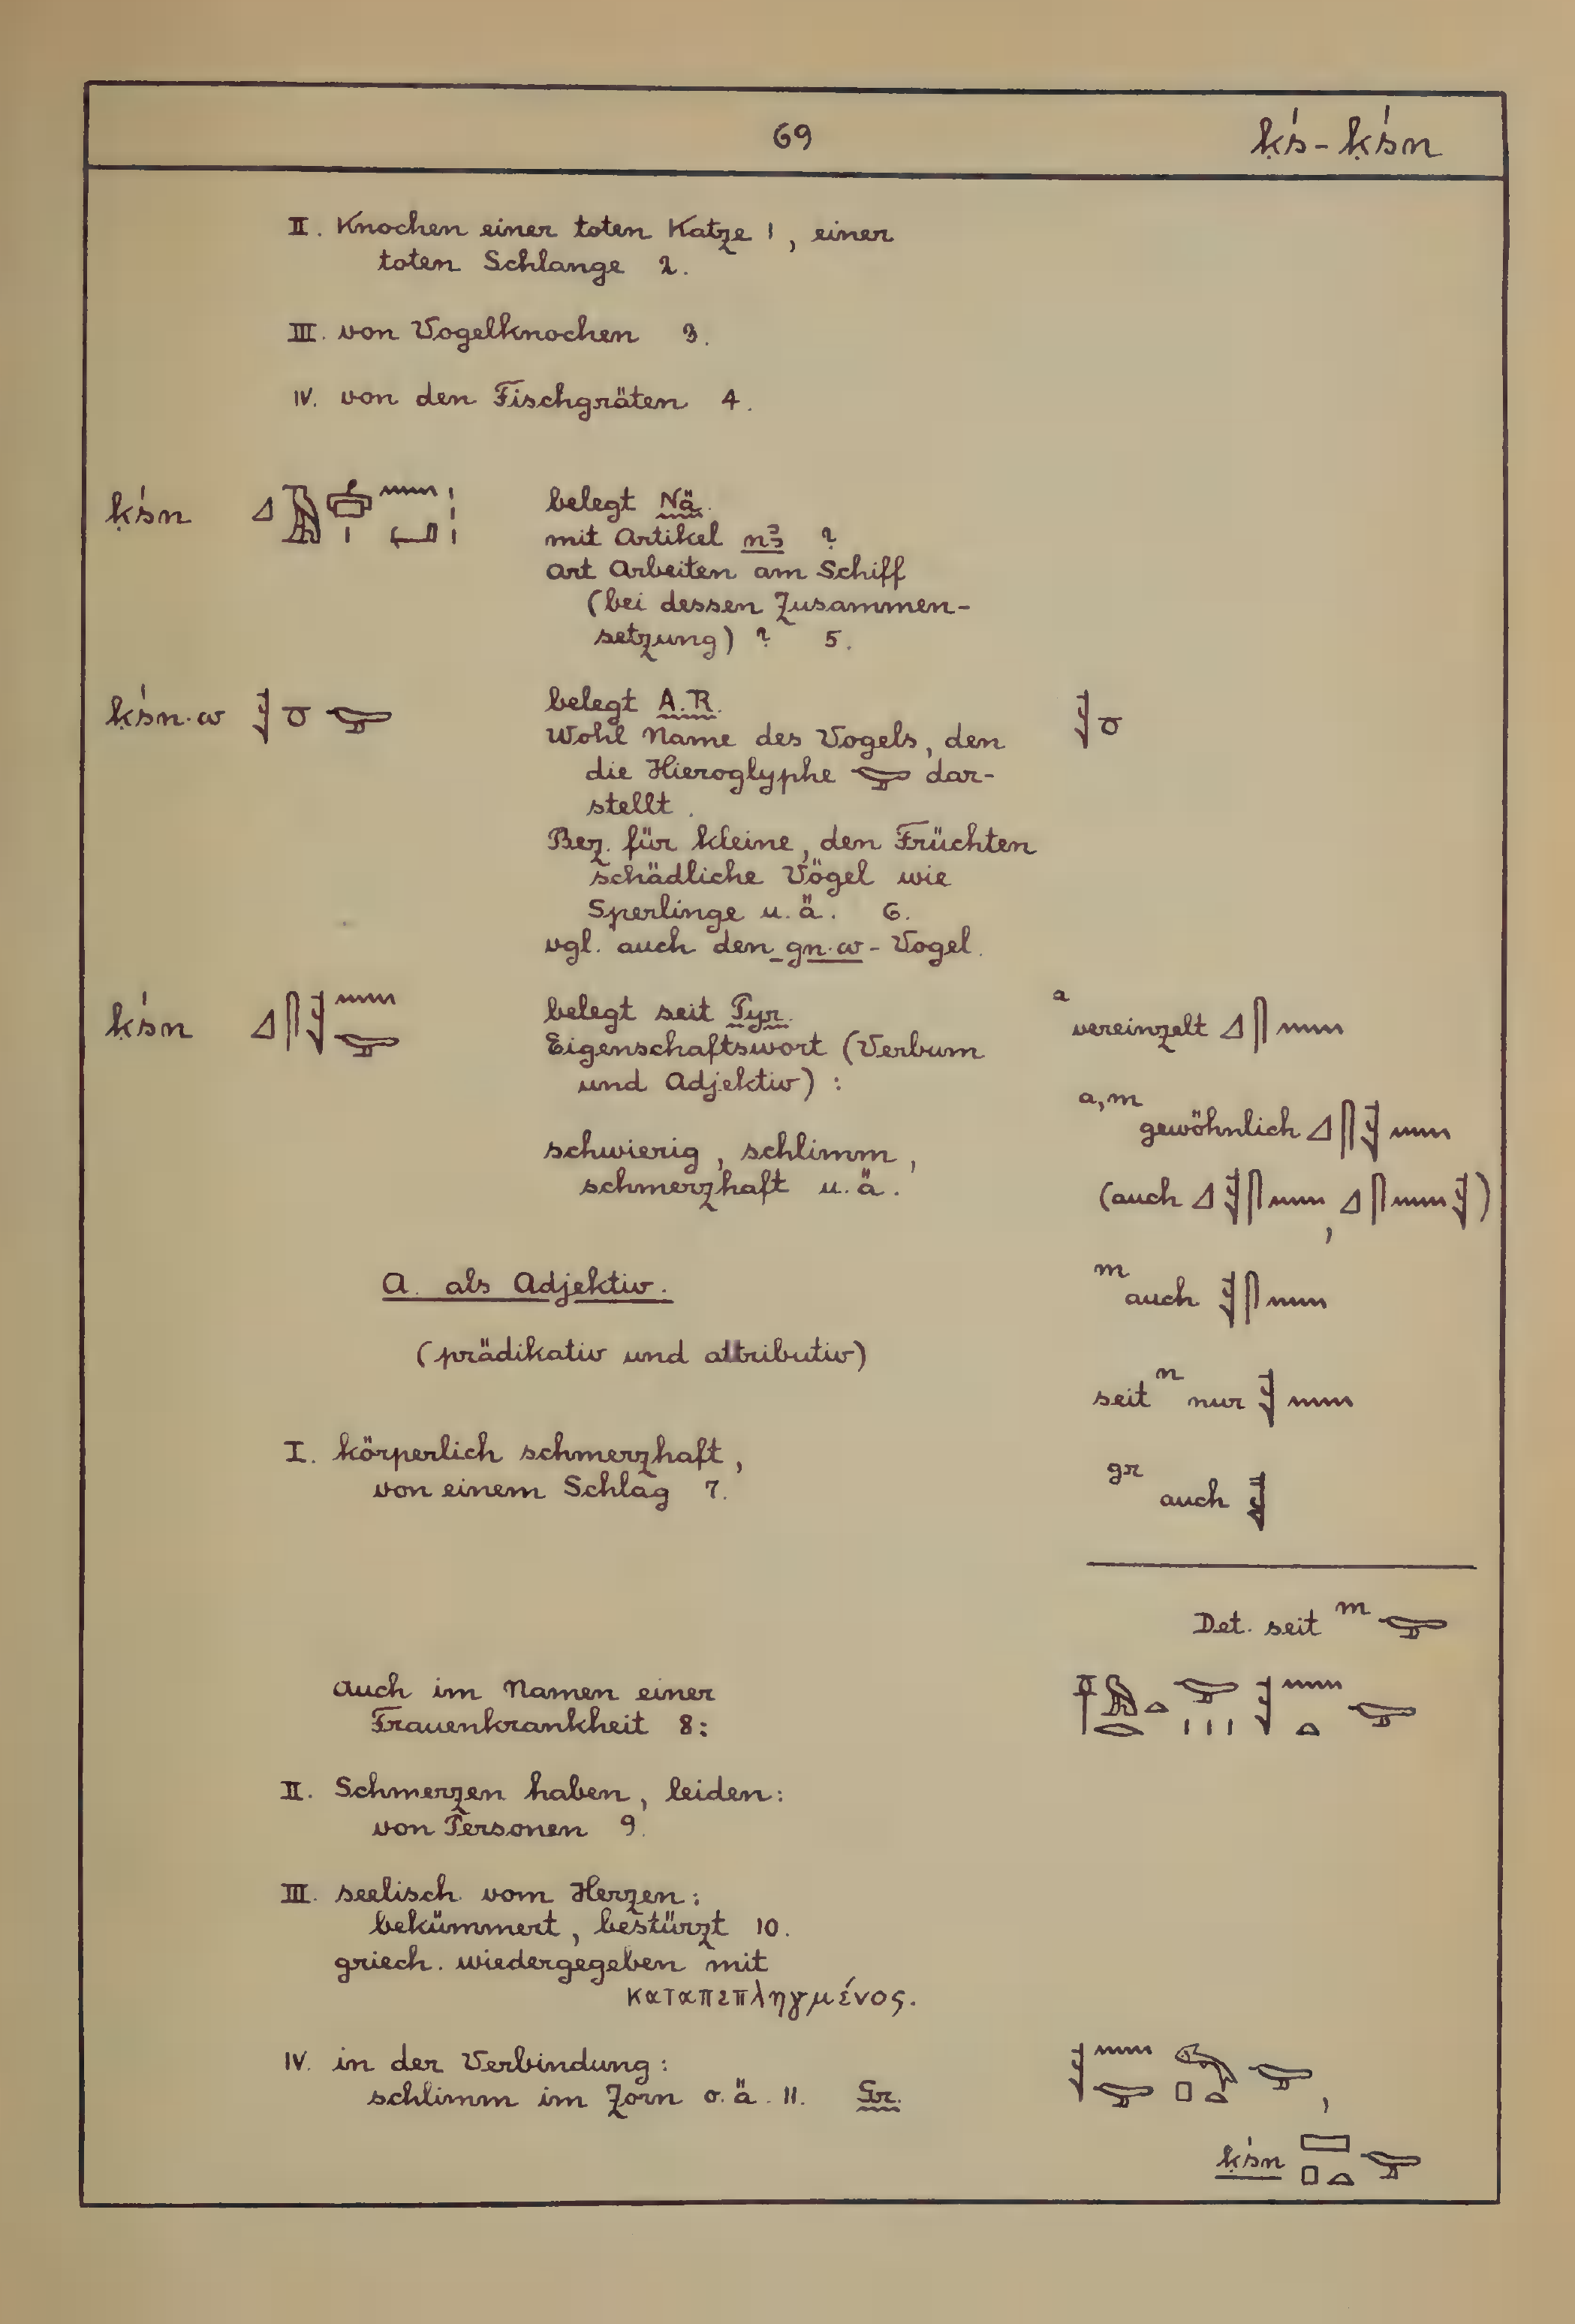 69
ḳś-ḳśn
II. Knochen einer toten Katze 1, einer
toten Schlange 2.
III. von Vogelknochen 3.
IV. von den Fischgräten 4.
ḳśn
belegt Nä.
mit Artikel nꜣ ?
Art Arbeiten am Schiff
(bei dessen Zusammen-
setzung) ? 5.
ḳśn.w
belegt A.R.
Wohl Name des Vogels, den
die Hieroglyphe 𓅪 dar-
stellt.
Bez. für kleine, den Früchten
schädliche Vögel wie
Sperlinge u.ä. 6.
vgl. auch den gn.w-Vogel.
ḳśn
belegt seit Pyr.
Eigenschaftswort (Verbum
und Adjektiv):
schwierig, schlimm,
schmerzhaft u.ä.
a vereinzelt 𓈎𓋴𓈖
a,m gewöhnlich
(auch
m auch
seit n nur
gr auch
Det. seit m 𓅪
A. als Adjektiv.
(prädikativ und attributiv)
I. körperlich schmerzhaft,
von einem Schlag 7.
Auch im Namen einer
Frauenkrankheit 8:
II. Schmerzen haben, leiden:
von Personen 9.
III. seelisch vom Herzen:
bekümmert, bestürzt 10.
griech. wiedergegeben mit
καταπεπληγμένος.
IV. in der Verbindung:
schlimm im Zorn o.ä. 11. Gr.
ḳśn